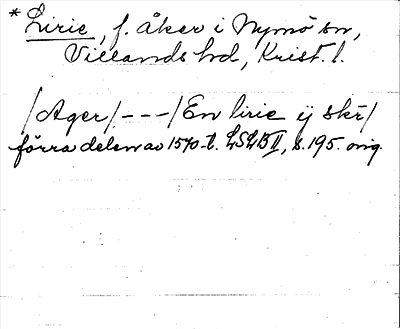 * Lirie, f. åker i Nymö sn,
Villands hd, Krist. l.
/Ager/ - - - /En lirie ij skr/
förra delen av 1570-t. LSLB II, s. 195. orig.